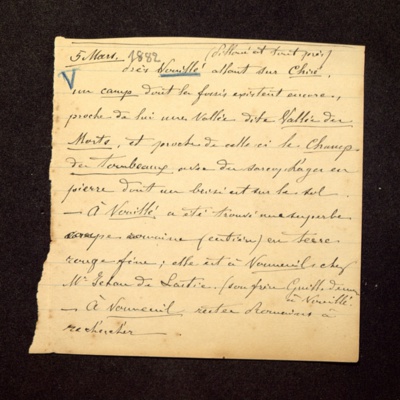 5 Mars. 1882 (
et tout près)
près Vouillé allant sur Chiré,
un camp dont les fossés existent encore,
proche de lui une Vallée dite Vallée des
Morts, et proche de celle ci le Champ
des tombeaux, avec des sarcophages en
pierre dont un brisé est sur le sol
— À Vouillé a été trouvé une superbe
coupe romaine (entière) en terre
rouge fine; elle est à Vouneuil chez
Mr Jehan de Lastic, (son frère
à Vouillé
— À Vouneuil restes Romains à
rechercher